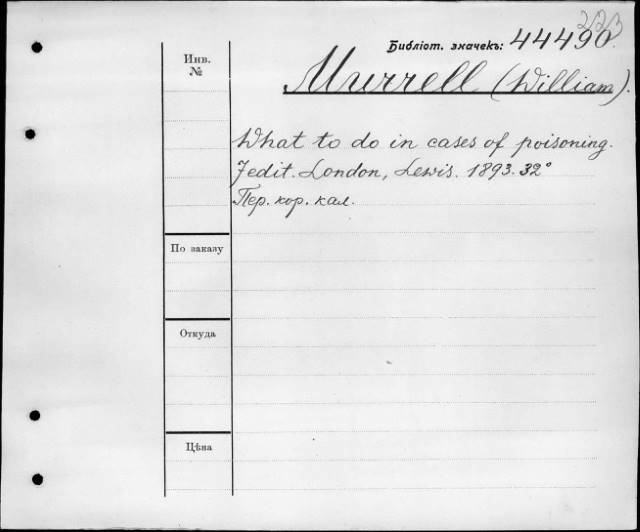 223
Библіот. значекъ: 44490.
Инв.
№
Murrell (William).
What to do in cases of poisoning.
7 edit. London, Lewis. 1893. 32°
Пер. кор. кал.
По заказу
Откуда
Цѣна